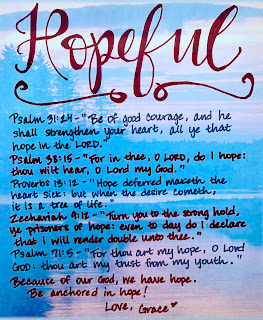 Hopeful
Psalm 31:24 - "Be of good courage, and he
shall strengthen your heart, all ye that
hope in the LORD."
Psalm 38:15 - "For in thee, O LORD, do I hope:
thou wilt hear, O Lord my God."
Proverbs 13:12 - "Hope deferred maketh the
heart sick: but when the desire cometh,
it is a tree of life."
Zechariah 9:12 - "Turn you to the strong hold,
ye prisoners of hope: even to day do I declare
that I will render double unto thee."
Psalm 71:5 - "For thou art my hope, O Lord
GOD: thou art my trust from my youth."
Because of our God, we have hope.
Be anchored in hope!
Love, Grace ♥